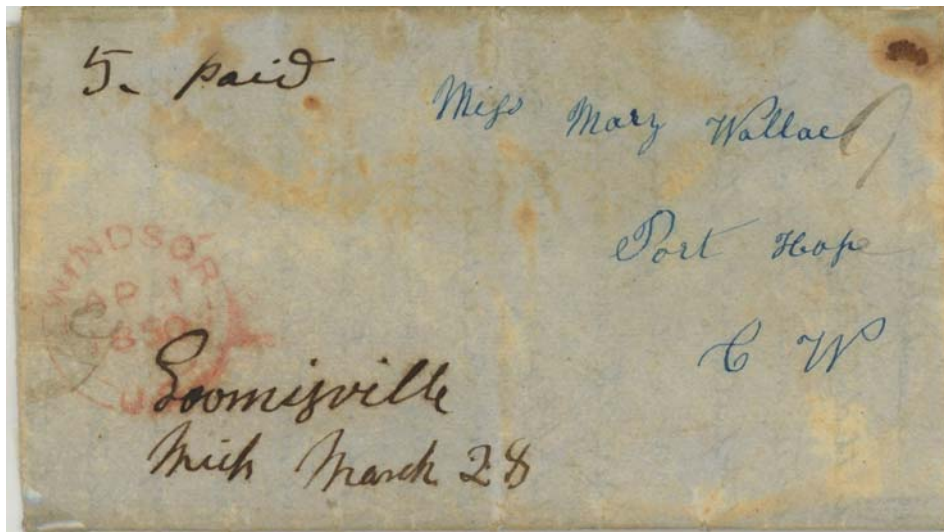 5. paid
Miss Mary Wallace
Port Hope
C W
WINDSOR
AP 1
1850
U.C.
Loomisville
Mich March 28